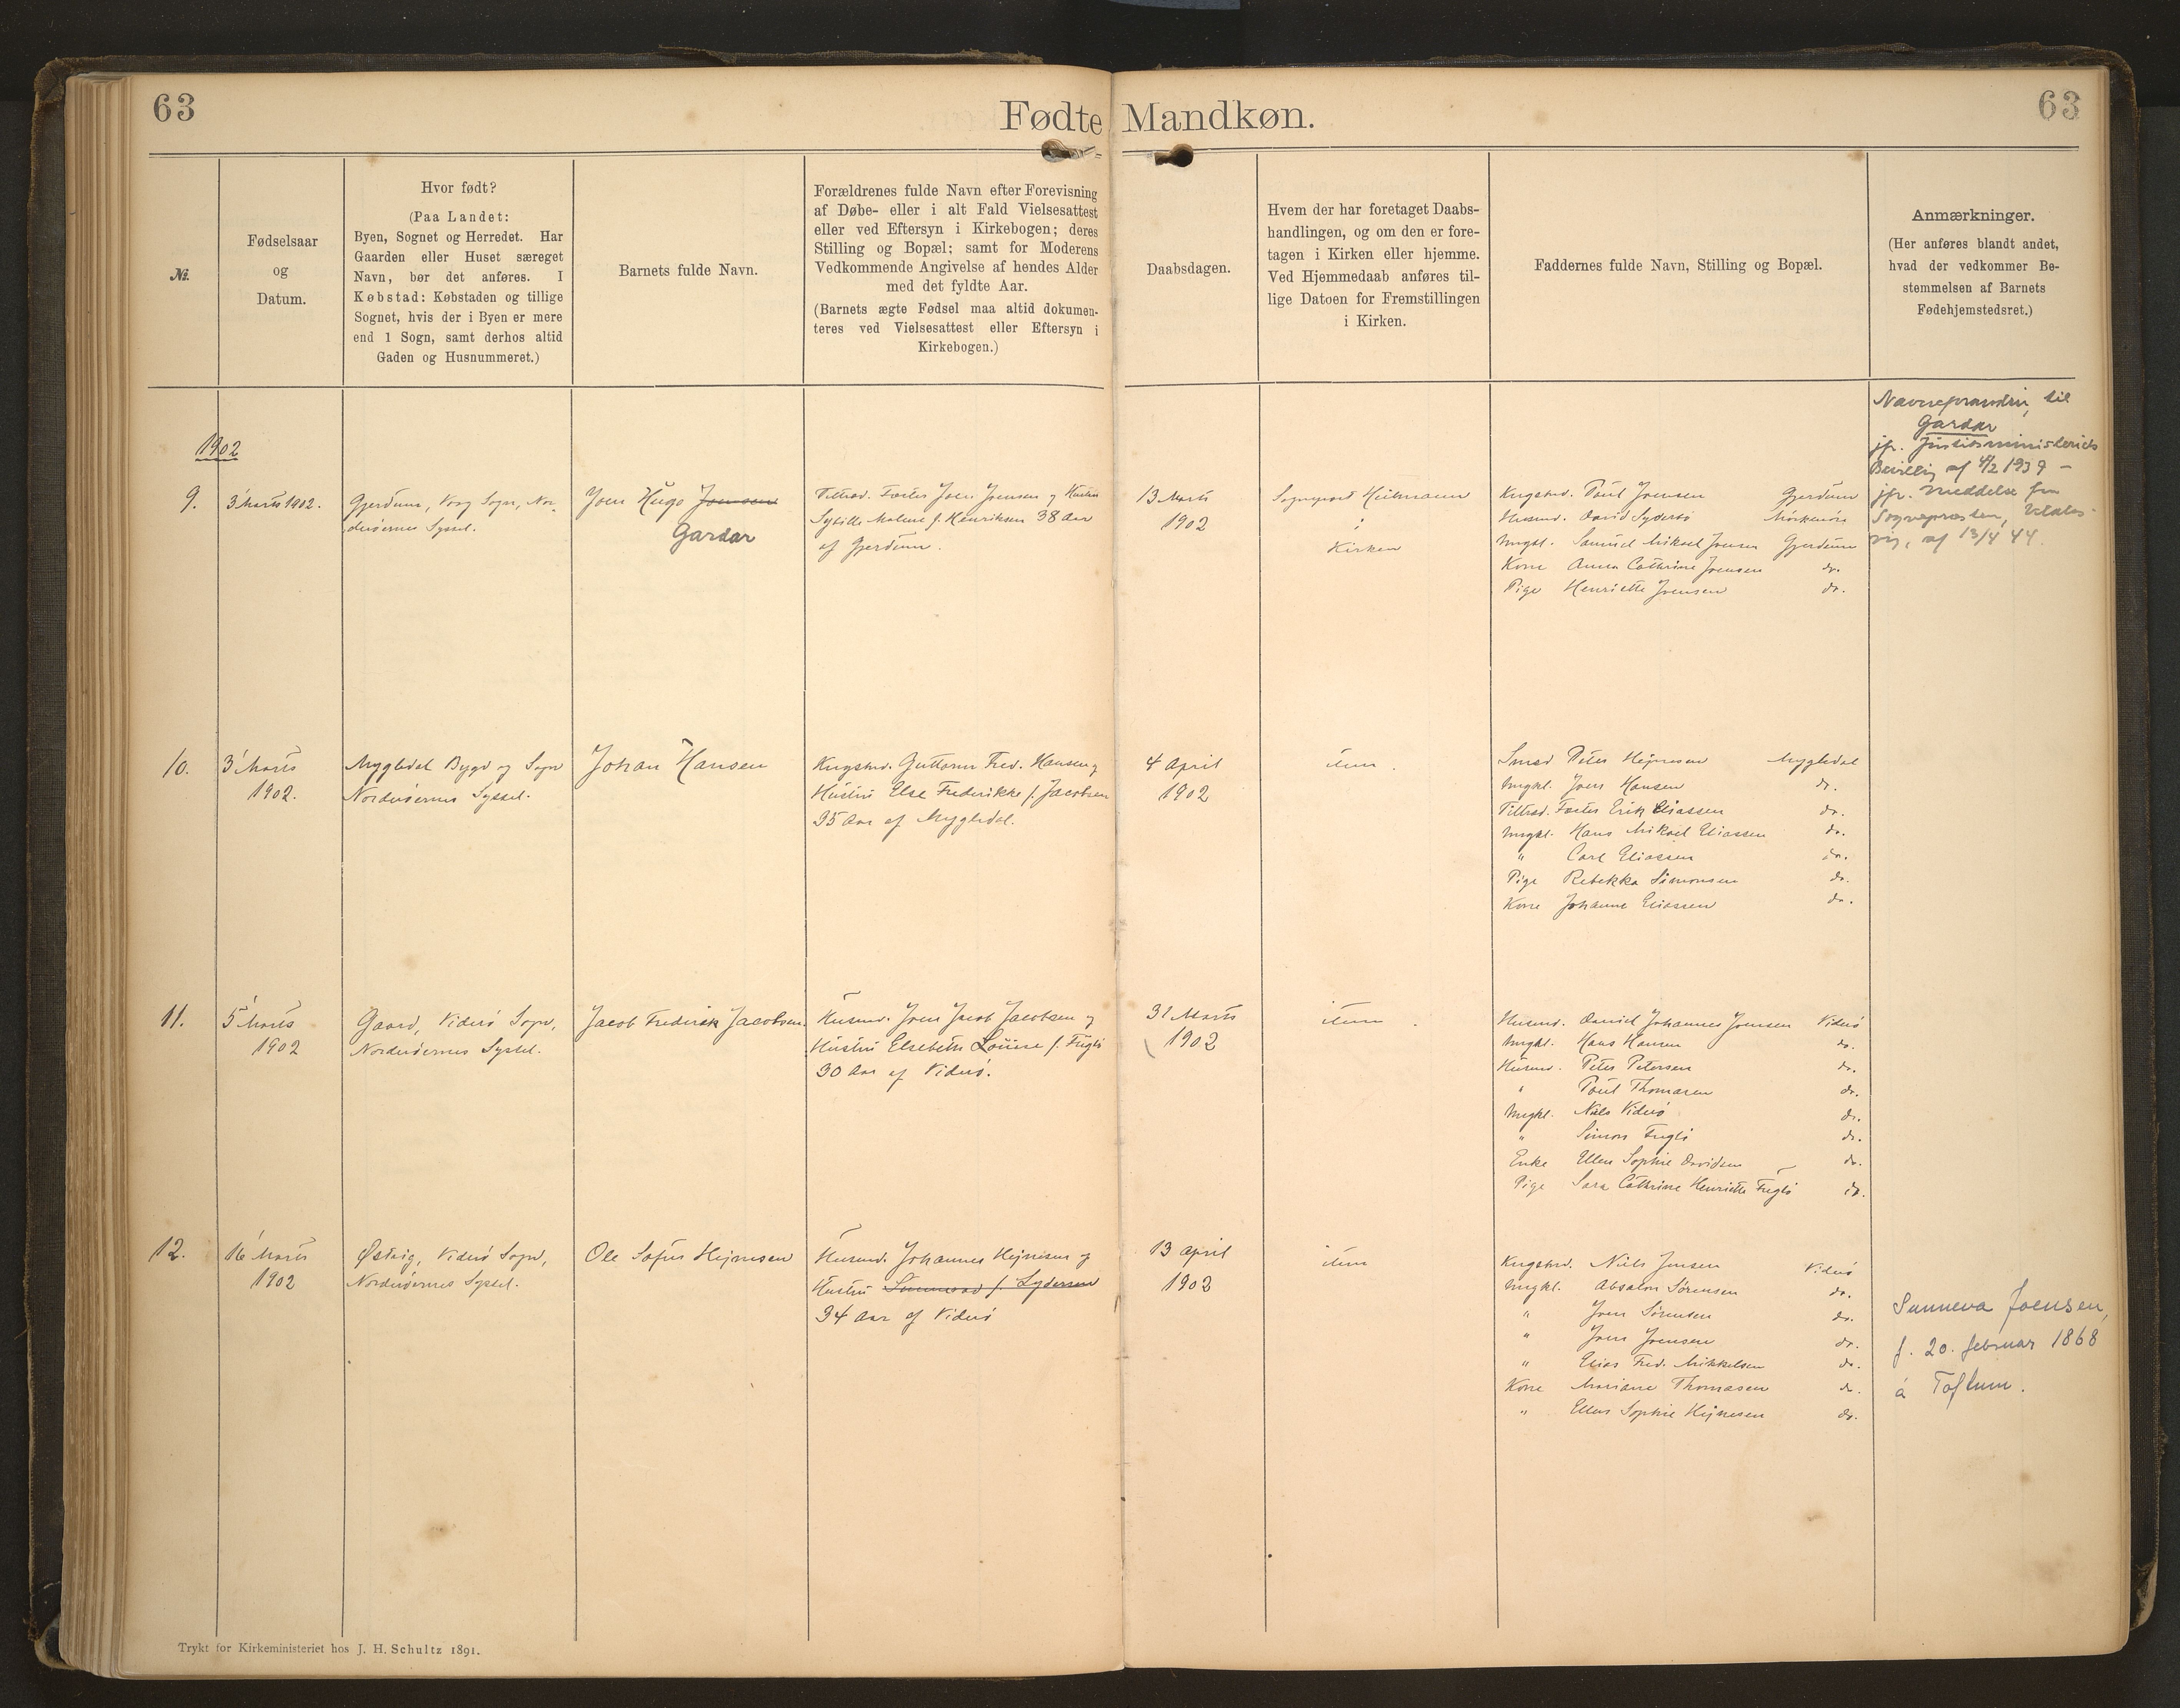 63
Fødte Mandkøn.
63
Nr.
Fødselsaar
og
Datum.
Hvor født?
(Paa Landet:
Byen, Sognet og Herredet. Har
Gaarden eller Huset særeget
Navn, bør det anføres. I
Købstad: Købstaden og tillige
Sognet, hvis der i Byen er mere
end 1 Sogn, samt derhos altid
Gaden og Husnummeret.)
Barnets fulde Navn.
Forældrenes fulde Navn efter Forevisning
af Døbe- eller i alt Fald Vielsesattest
eller ved Eftersyn i Kirkebogen; deres
Stilling og Bopæl; samt for Moderens
Vedkommende Angivelse af hendes Alder
med det fyldte Aar.
(Barnets ægte Fødsel maa altid dokumen-
teres ved Vielsesattest eller Eftersyn i
Kirkebogen.)
Daabsdagen.
Hvem der har foretaget Daabs-
handlingen, og om den er fore-
tagen i Kirken eller hjemme.
Ved Hjemmedaab anføres til-
lige Datoen for Fremstillingen
i Kirken.
Faddernes fulde Navn, Stilling og Bopæl.
Anmærkninger.
(Her anføres blandt andet,
hvad der vedkommer Be-
stemmelsen af Barnets
Fødehjemstedsret.)
1902
9.
3' Marts 1902.
Gjerdum, Vaag Sogn, Nor-
derøernes Syssel.
Joen Hugo Joensen
Gardar
Tiltræd. Fæster Joen Joensen og Hustru
Sybille Malene f. Henriksen 38 Aar
af Gjerdum.
13 Marts
1902
Sognepræst Heilmann
i
Kirken
Kngsmd. Poul Joensen Gjerdum
Husmd. David Syderbø Mörkenöre
Ungkl. Samuel Mikael Joensen Gjerdum
Kone Anna Cathrine Joensen do.
Pige Henriette Joensen do.
Navneforandring til
Gardar
jfr. Justitsministeriets
Bevilling af 4/2 1939 –
jfr. Meddelse fra
Sognepræsten,
af 13/4 44.
10.
3' Marts
1902.
Mygledal Bygd og Sogn
Norderøernes Syssel.
Johan Hansen
Kngsmd. Guttorm Fred. Hansen og
Hustru Else Frederikke f. Jacobsen
35 Aar af Mygledal.
4 April
1902
item.
Smed Peter Hejnesen Mygledal
Ungkl. Joen Hansen do.
Tiltræd. Fæster Erik Eliassen do.
Ungkl. Hans Mikael Eliassen do.
" Carl Eliassen do.
Pige Rebekka Simonsen do.
Kone Johanne Eliassen do.
11.
5' Marts
1902
Gaard, Viderø Sogn,
Norderøernes Syssel.
Jacob Frederik Jacobsen.
Husmd. Joen Jacob Jacobsen og
Hustru Elsebeth Louise f. Fuglø
30 Aar af Viderø.
31 Marts
1902
item.
Husmd. Daniel Johannes Joensen Viderø
Ungkl. Hans Hansen do.
Husmd. Peter Petersen do.
" Poul Thomasen do.
Ungkl. Niels Viderø do.
" Simon Fuglø do.
Enke Ellen Sophie Davidsen do.
Pige Sara Cathrine Henriette Fuglø do.
12.
16' Marts
1902
Østvig, Viderø Sogn,
Norderøernes Syssel.
Ole Sofus Hejnesen
Husmd. Johannes Hejnesen og
Hustru f. Lydersen
34 Aar af Viderø
13 April
1902
item
Kngsmd. Niels Jensen Viderø
Ungkl. Absalon Sørensen do.
" Joen Sørensen do.
" Joen Joensen do.
" Elias Fred. Mikkelsen do.
Kone Mariane Thomasen do.
" Ellen Sophie Hejnesen do.
Sunneva Joensen,
f. 20. februar 1868
á Toftum.
Trykt for Kirkeministeriet hos J. H. Schultz 1891.